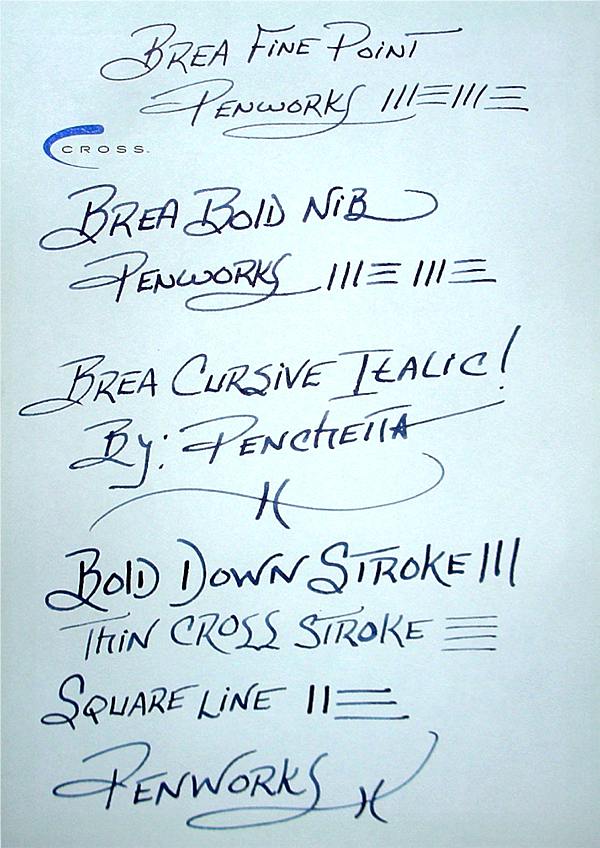 BREA FINE POINT
PENWORKS
CROSS
BREA BOLD NiB
PENWORKS
BREA CURSiVE ITALiC!
By: PENCHETTA
BOLD DOWN STROKE
THiN CROSS STROKE
SQUARE LiNE
PENWORKS